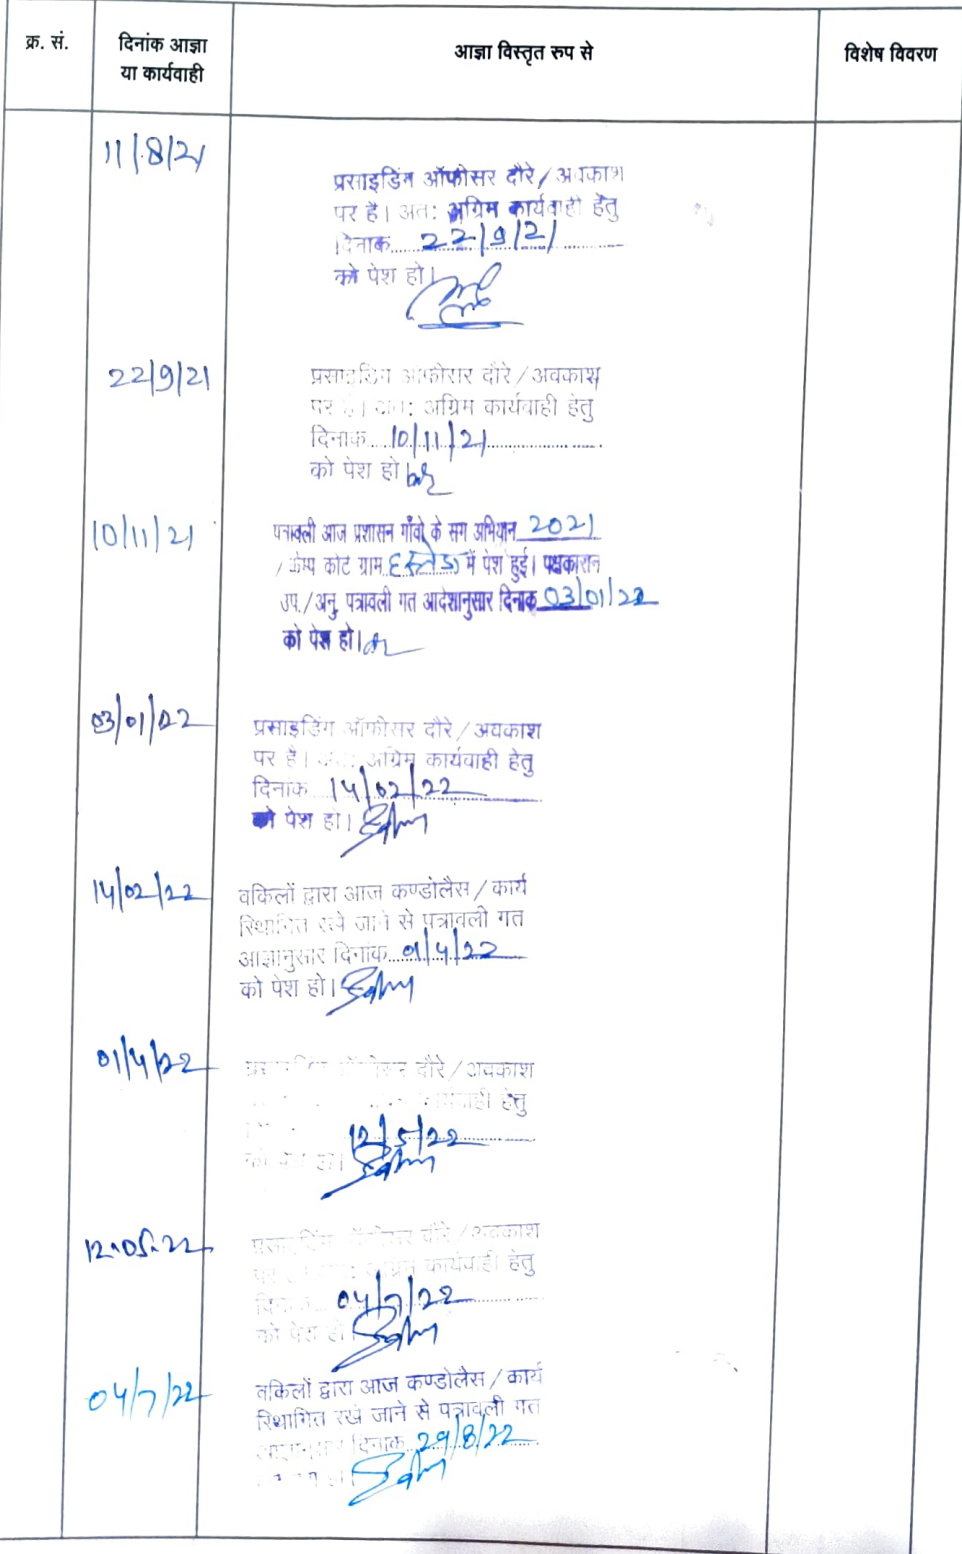 क्र. सं.
दिनांक आज्ञा
या कार्यवाही
आज्ञा विस्तृत रुप से
विशेष विवरण
11/8/21
प्रसाइडिंग ऑफीसर दौरे/अवकाश
पर है। अत: अग्रिम कार्यवाही हेतु
दिनाक 22/9/21
को पेश हो।
22/9/21
प्रसाइडिंग ऑफीसर दौरे/अवकाश
पर है। अत: अग्रिम कार्यवाही हेतु
दिनाक 10/11/21
को पेश हो
10/11/21
पत्रावली आज प्रशासन गाँवो के सग अभियान 2021
/कैम्प कोट ग्राम हस्तेडा में पेश हुई। पक्षकारान
उप./अनु. पत्रावली गत आदेशानुसार दिनाक 03/01/22
को पेश हो।
03/01/22
प्रसाइडिंग ऑफीसर दौरे/अवकाश
पर है। अत: अग्रिम कार्यवाही हेतु
दिनांक 14/02/22
को पेश हो।
14/02/22
वकिलों द्वारा आज कण्डोलैस/कार्य
स्थिागित रखे जाने से पत्रावली गत
आज्ञानुसार दिनांक 01/4/22
को पेश हो।
01/4/22
दौरे/अवकाश
कार्यवाही हेतु
12/5/22
को पेश हो।
12.05.22
प्रसाइडिंग ऑफीसर दौरे/अवकाश
अग्रिम कार्यवाही हेतु
04/7/22
को पेश हो
04/7/22
वकिलों द्वारा आज कण्डोलैस/कार्य
स्थिागित रखे जाने से पत्रावली गत
दिनाक 29/8/22